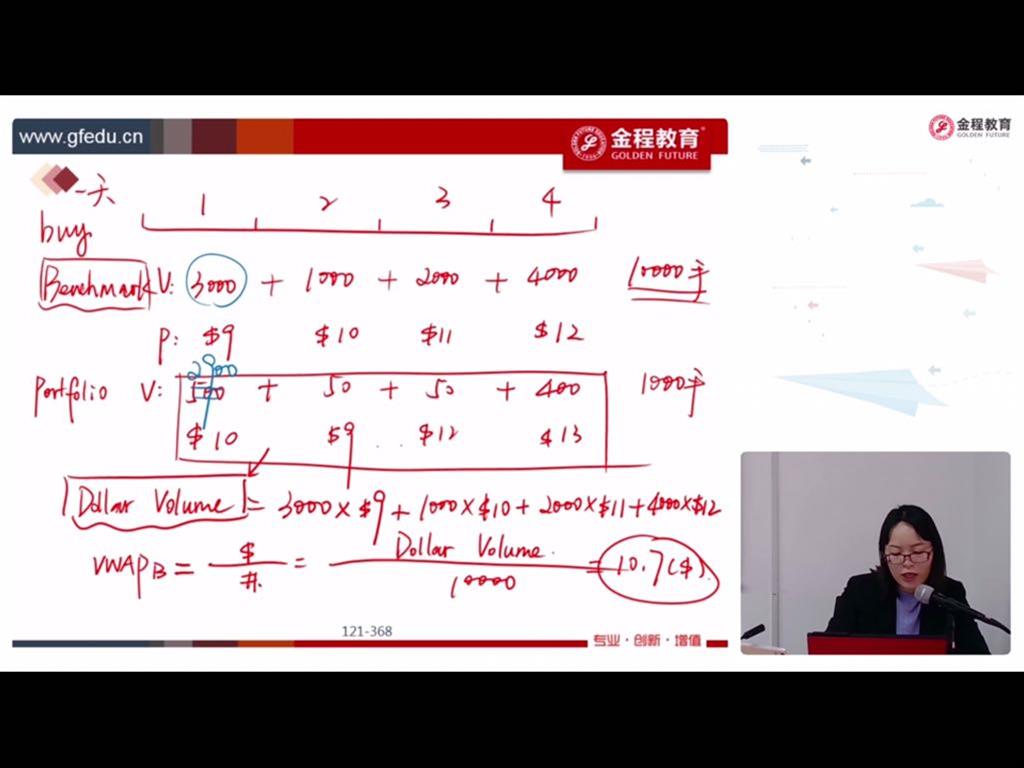 www.gfedu.cn
金程教育
GOLDEN FUTURE
金程教育
GOLDEN FUTURE
一天 1 2 3 4
buy
Benchmark V: 3000 + 1000 + 2000 + 4000 10000手
P: $9 $10 $11 $12
2900
Portfolio V: 500 + 50 + 50 + 400 1000手
$10 $9 $12 $13
Dollar Volume = 3000×$9 + 1000×$10 + 2000×$11 + 4000×$12
VWAP_B = $/#. = Dollar Volume./10000 = 10.7($).
121-368
专业·创新·增值